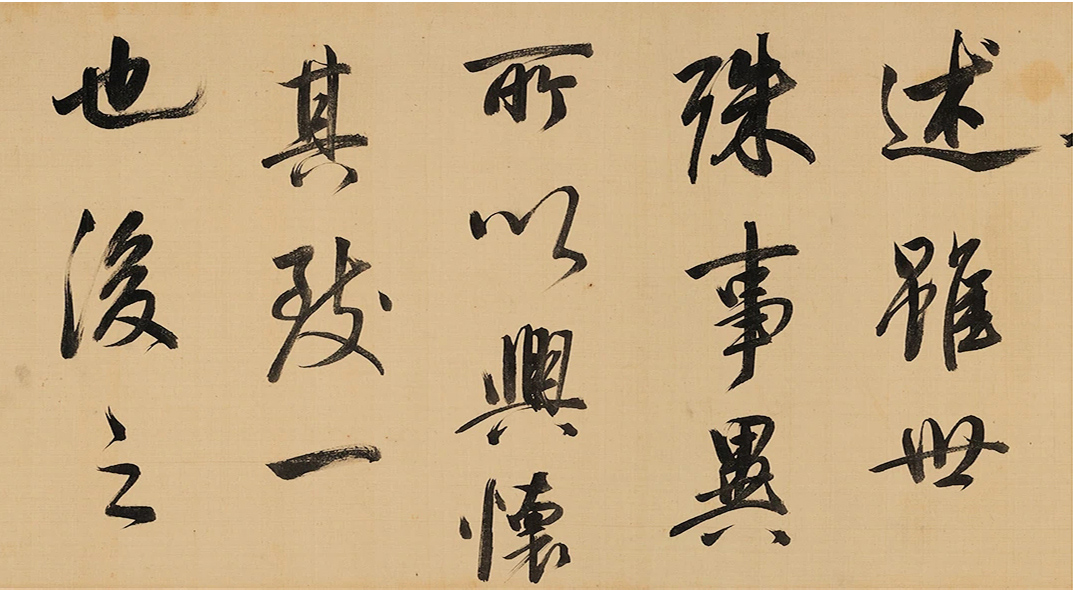 述雖世
殊事異
所以興懷
其致一
也後之